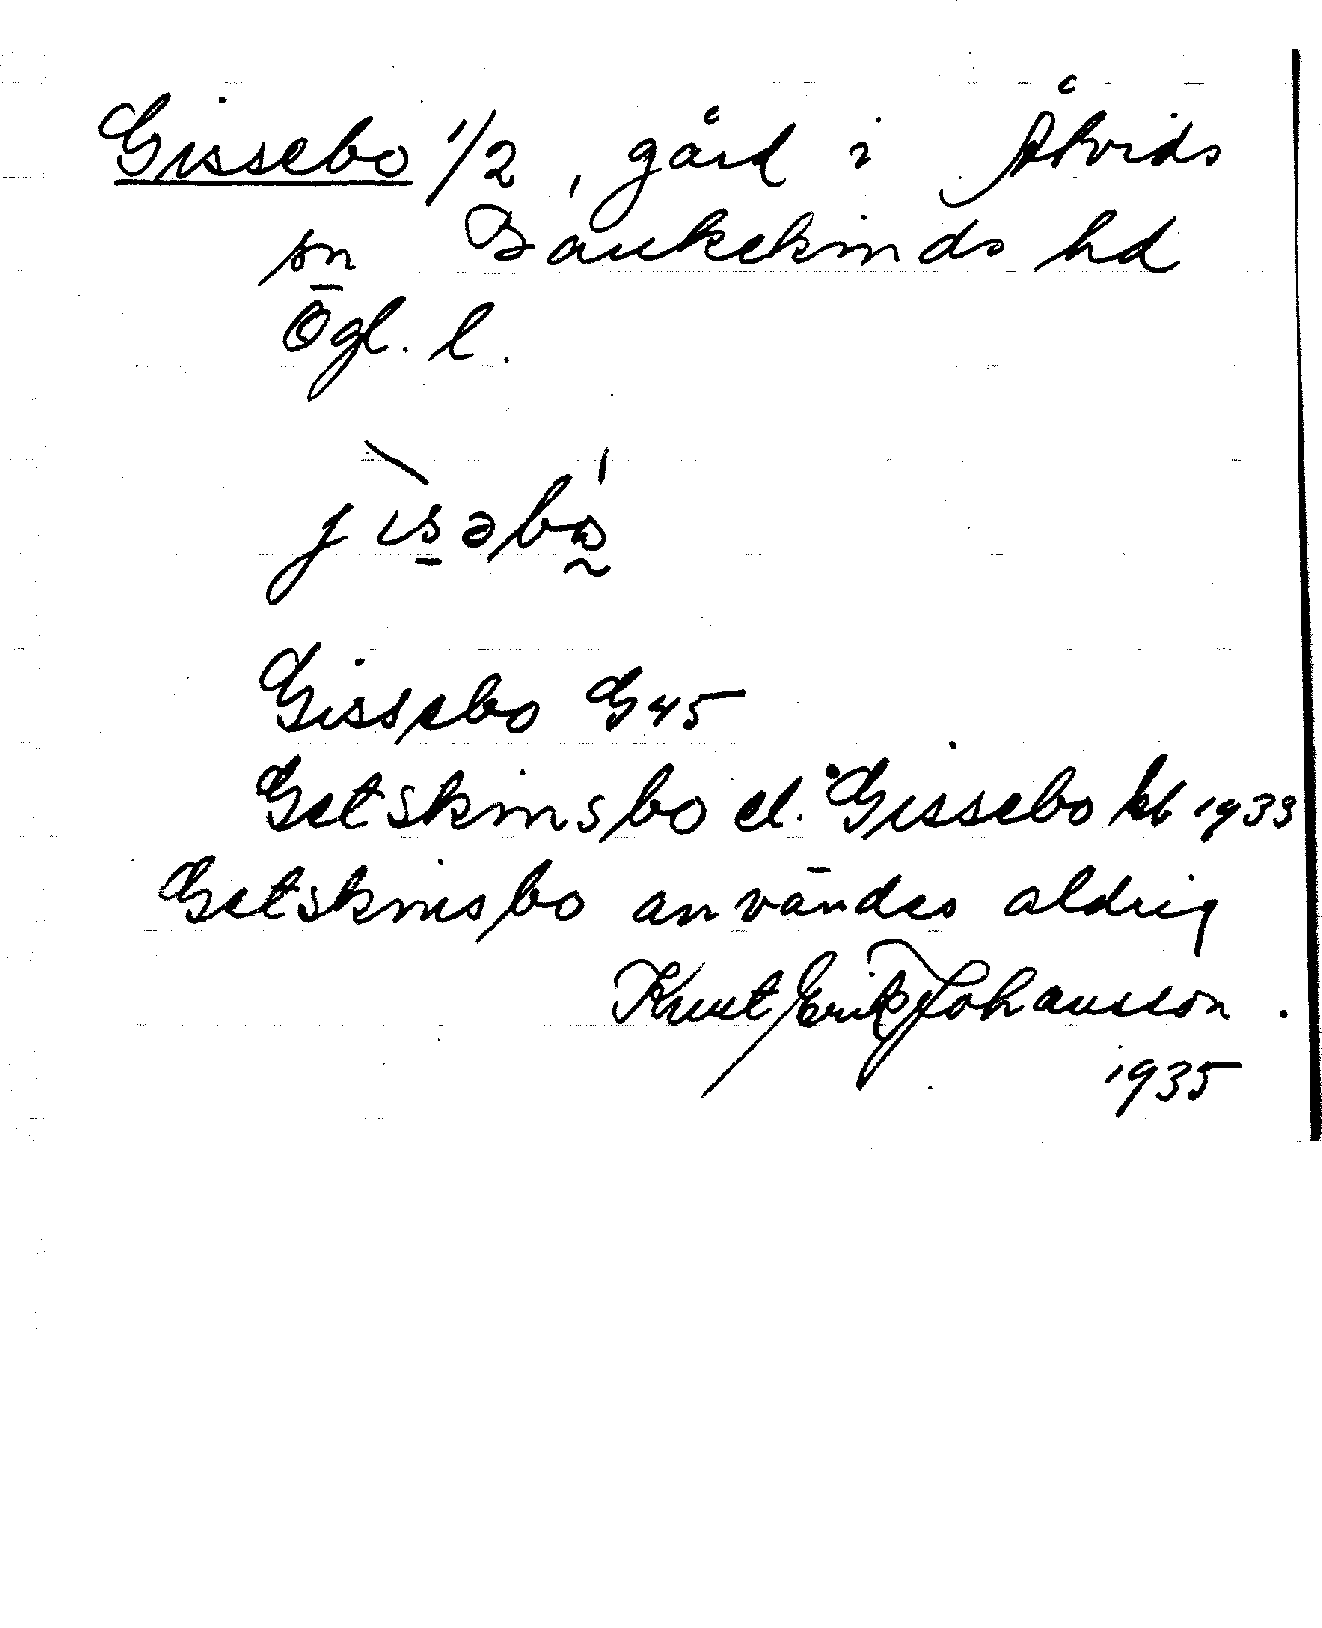 Gissebo 1/2, gård i Åtvids
sn Bankekinds hd
Ögl. l.
jìs̲əbǻ
Gissebo G45
Getskinsbo el. Gissebo kb 1933
Getskinsbo användes aldrig
Knut Erik Johansson.
1935